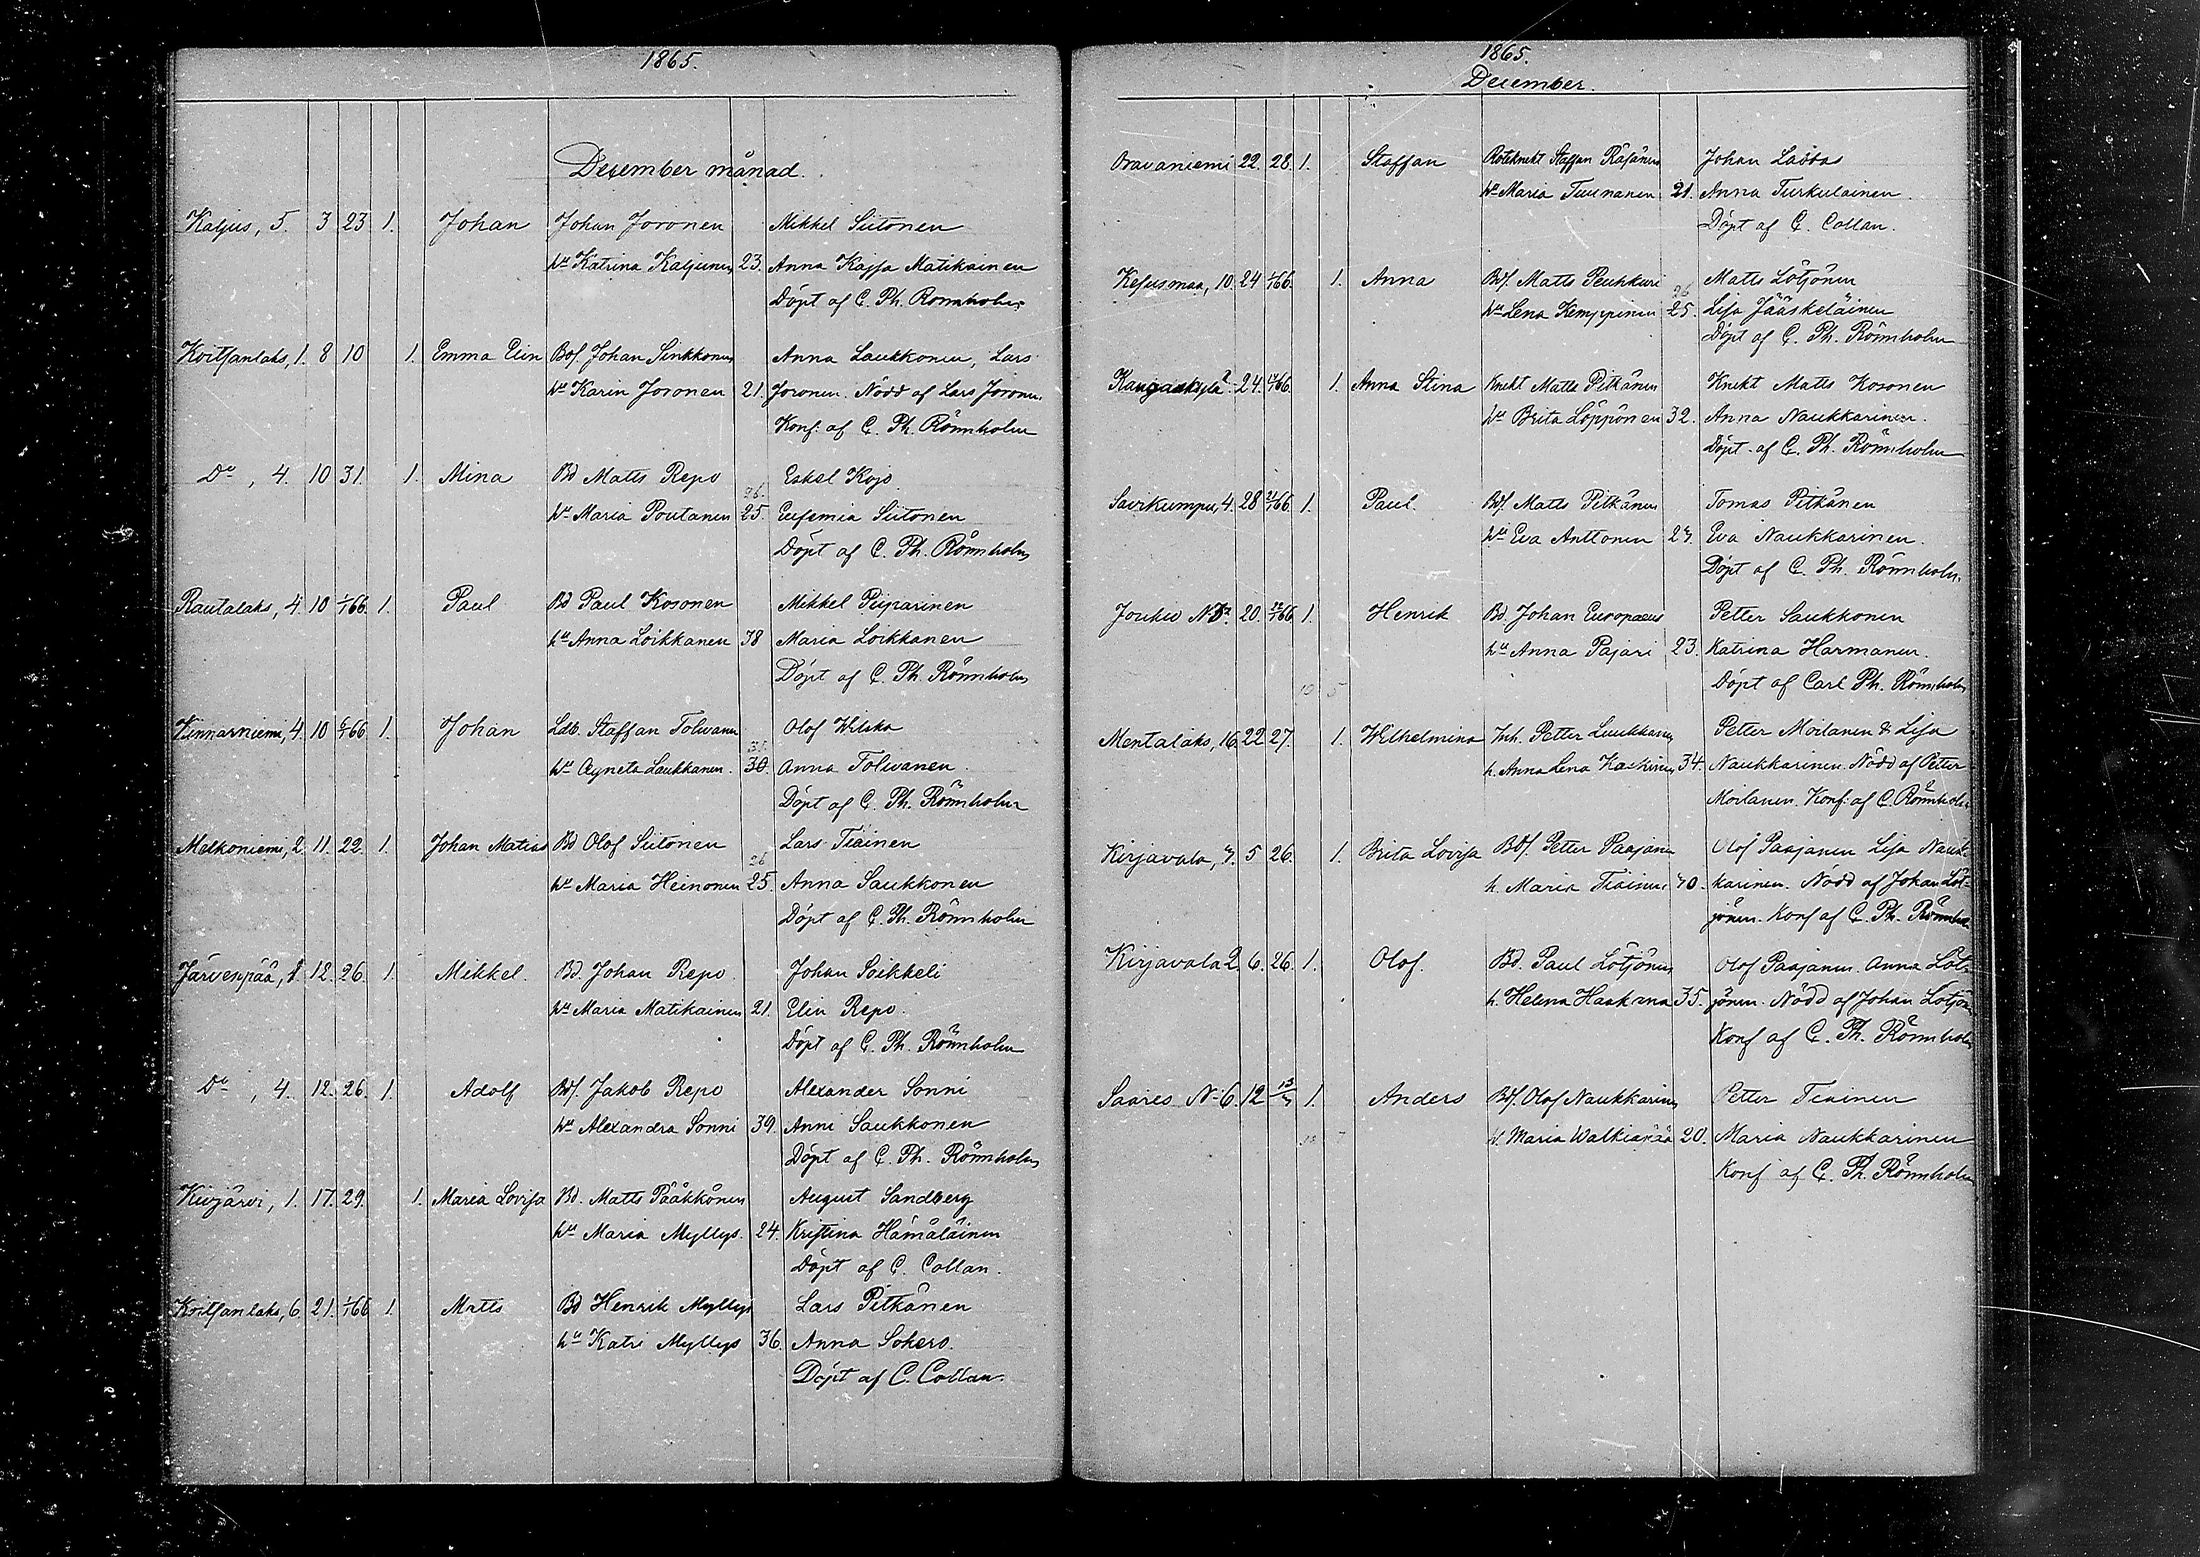 1865.
December månad.
Kaljus, 5. 3 23 1. Johan Johan Joronen Mikkel Siitonen
hu Katrina Kaljunen 23. Anna Kajsa Matikainen
Döpt af C. Ph. Rönnholm
Koitsanlaks, 1. 8 10 1. Emma Elin Bof. Johan Sinkkonen Anna Laukkonen, Lars
hu Karin Joronen 21. Joronen. Nödd af Lars Joronen.
Konf. af C. Ph. Rönnholm
Do, 4. 10 31. 1. Mina Bd Matts Repo Eskel Kojo
26.
hu Maria Poutanen 25. Eufemia Siitonen
Döpt af C. Ph. Rönnholm
Rautalaks, 4. 10 1/1 66 1. Paul Bd Paul Kosonen Mikkel Piiparinen
hu Anna Loikkanen 38 Maria Loikkanen
Döpt af C. Ph. Rönnholm
Kinnarniemi, 4. 10 6/1 66 1. Johan Ldb. Staffan Tolwanen Olof Wilska
hu Agneta Laukkanen. 30. Anna Tolwanen.
Döpt af C. Ph. Rönnholm
Melkoniemi, 2. 11. 22. 1. Johan Matias Bd Olof Siitonen Lars Tiainen
26
hu Maria Heinonen 25. Anna Saukkonen
Döpt af C. Ph. Rönnholm
Järvenpää, 1. 12. 26. 1. Mikkel. Bd. Johan Repo. Johan Soikkeli
hu Maria Matikainen 21. Elin Repo.
Döpt af C. Ph. Rönnholm
Do, 4. 12. 26. 1. Adolf Bdf. Jakob Repo Alexander Sonni
hu Alexandra Sonni 39. Anni Saukkonen
Döpt af C. Ph. Rönnholm
Kivijärvi, 1. 17. 29. 1. Maria Lovisa Bd. Matts Pääkkönen August Sandberg
hu Maria Myllys. 24. Kristina Hämäläinen
Döpt af C. Collan.
Koitsanlaks, 6. 21. 1/1 66 1. Matts Bd Henrik Myllys Lars Pitkänen
hu Katri Myllys 36. Anna Sokero.
Döpt af C. Collan.
1865.
December.
Oravaniemi 22. 28. 1. Staffan Roteknekt Staffan Räsänen Johan
hu Maria Tuunanen 21. Anna Turkulainen.
Döpt af C. Collan.
Kesusmaa, 10. 24 1/1 66. 1. Anna Bdf. Matts Peukkuri Matts Lötjönen
26
hu Lena Kemppinen 25. Lisa Jääskeläinen
Döpt af C. Ph. Rönnholm
Kangaskylä 2. 24. 66. 1. Anna Stina Knekt Matts Pitkänen Knekt Matts Kosonen
hu Brita Löppönen 32. Anna Naukkarinen.
Döpt af C. Ph. Rönnholm
Savikumpu, 4. 28 2/1 66 1. Paul. Bdf. Matts Pitkänen Tomas Pitkänen
hu Eva Anttonen 27. Eva Naukkarinen.
Döpt af C. Ph. Rönnholm.
Joukio No 20. 66 1. Henrik Bd. Johan Europaeus Petter Saukkonen
hu Anna Pajari 23. Katrina Harmanen.
Döpt af Carl Ph. Rönnholm
Mentalaks, 16. 22 27. 1. Wilhelmina Inh. Petter Luukkanen Petter Moilanen & Lisa
h. Anna Lena Kaskinen 34. Naukkarinen. Nödd af Petter
Moilanen. Konf. af C. Rönnholm
Kirjavala, 7. 5 26. 1. Brita Lovisa Bdf. Petter Paajanen Olof Paajanen Lisa Nauk-
h. Maria Tiainen 40. karinen. Nödd af Johan Löt-
jönen. Konf af C. Ph. Rönnholm
Kirjavala 2. 6. 26. 1. Olof. Bd. Paul Lötjönen Olof Paajanen. Anna Löt-
h. Helena Haakana 35. jönen. Nödd af Johan Lötjön
Konf af C. Ph. Rönnholm
Saares No 6. 12 1. Anders Bdf. Olof Naukkarinen Petter Tiainen
h. Maria Walkiapää 20. Maria Naukkarinen
Konf af C. Ph. Rönnholm